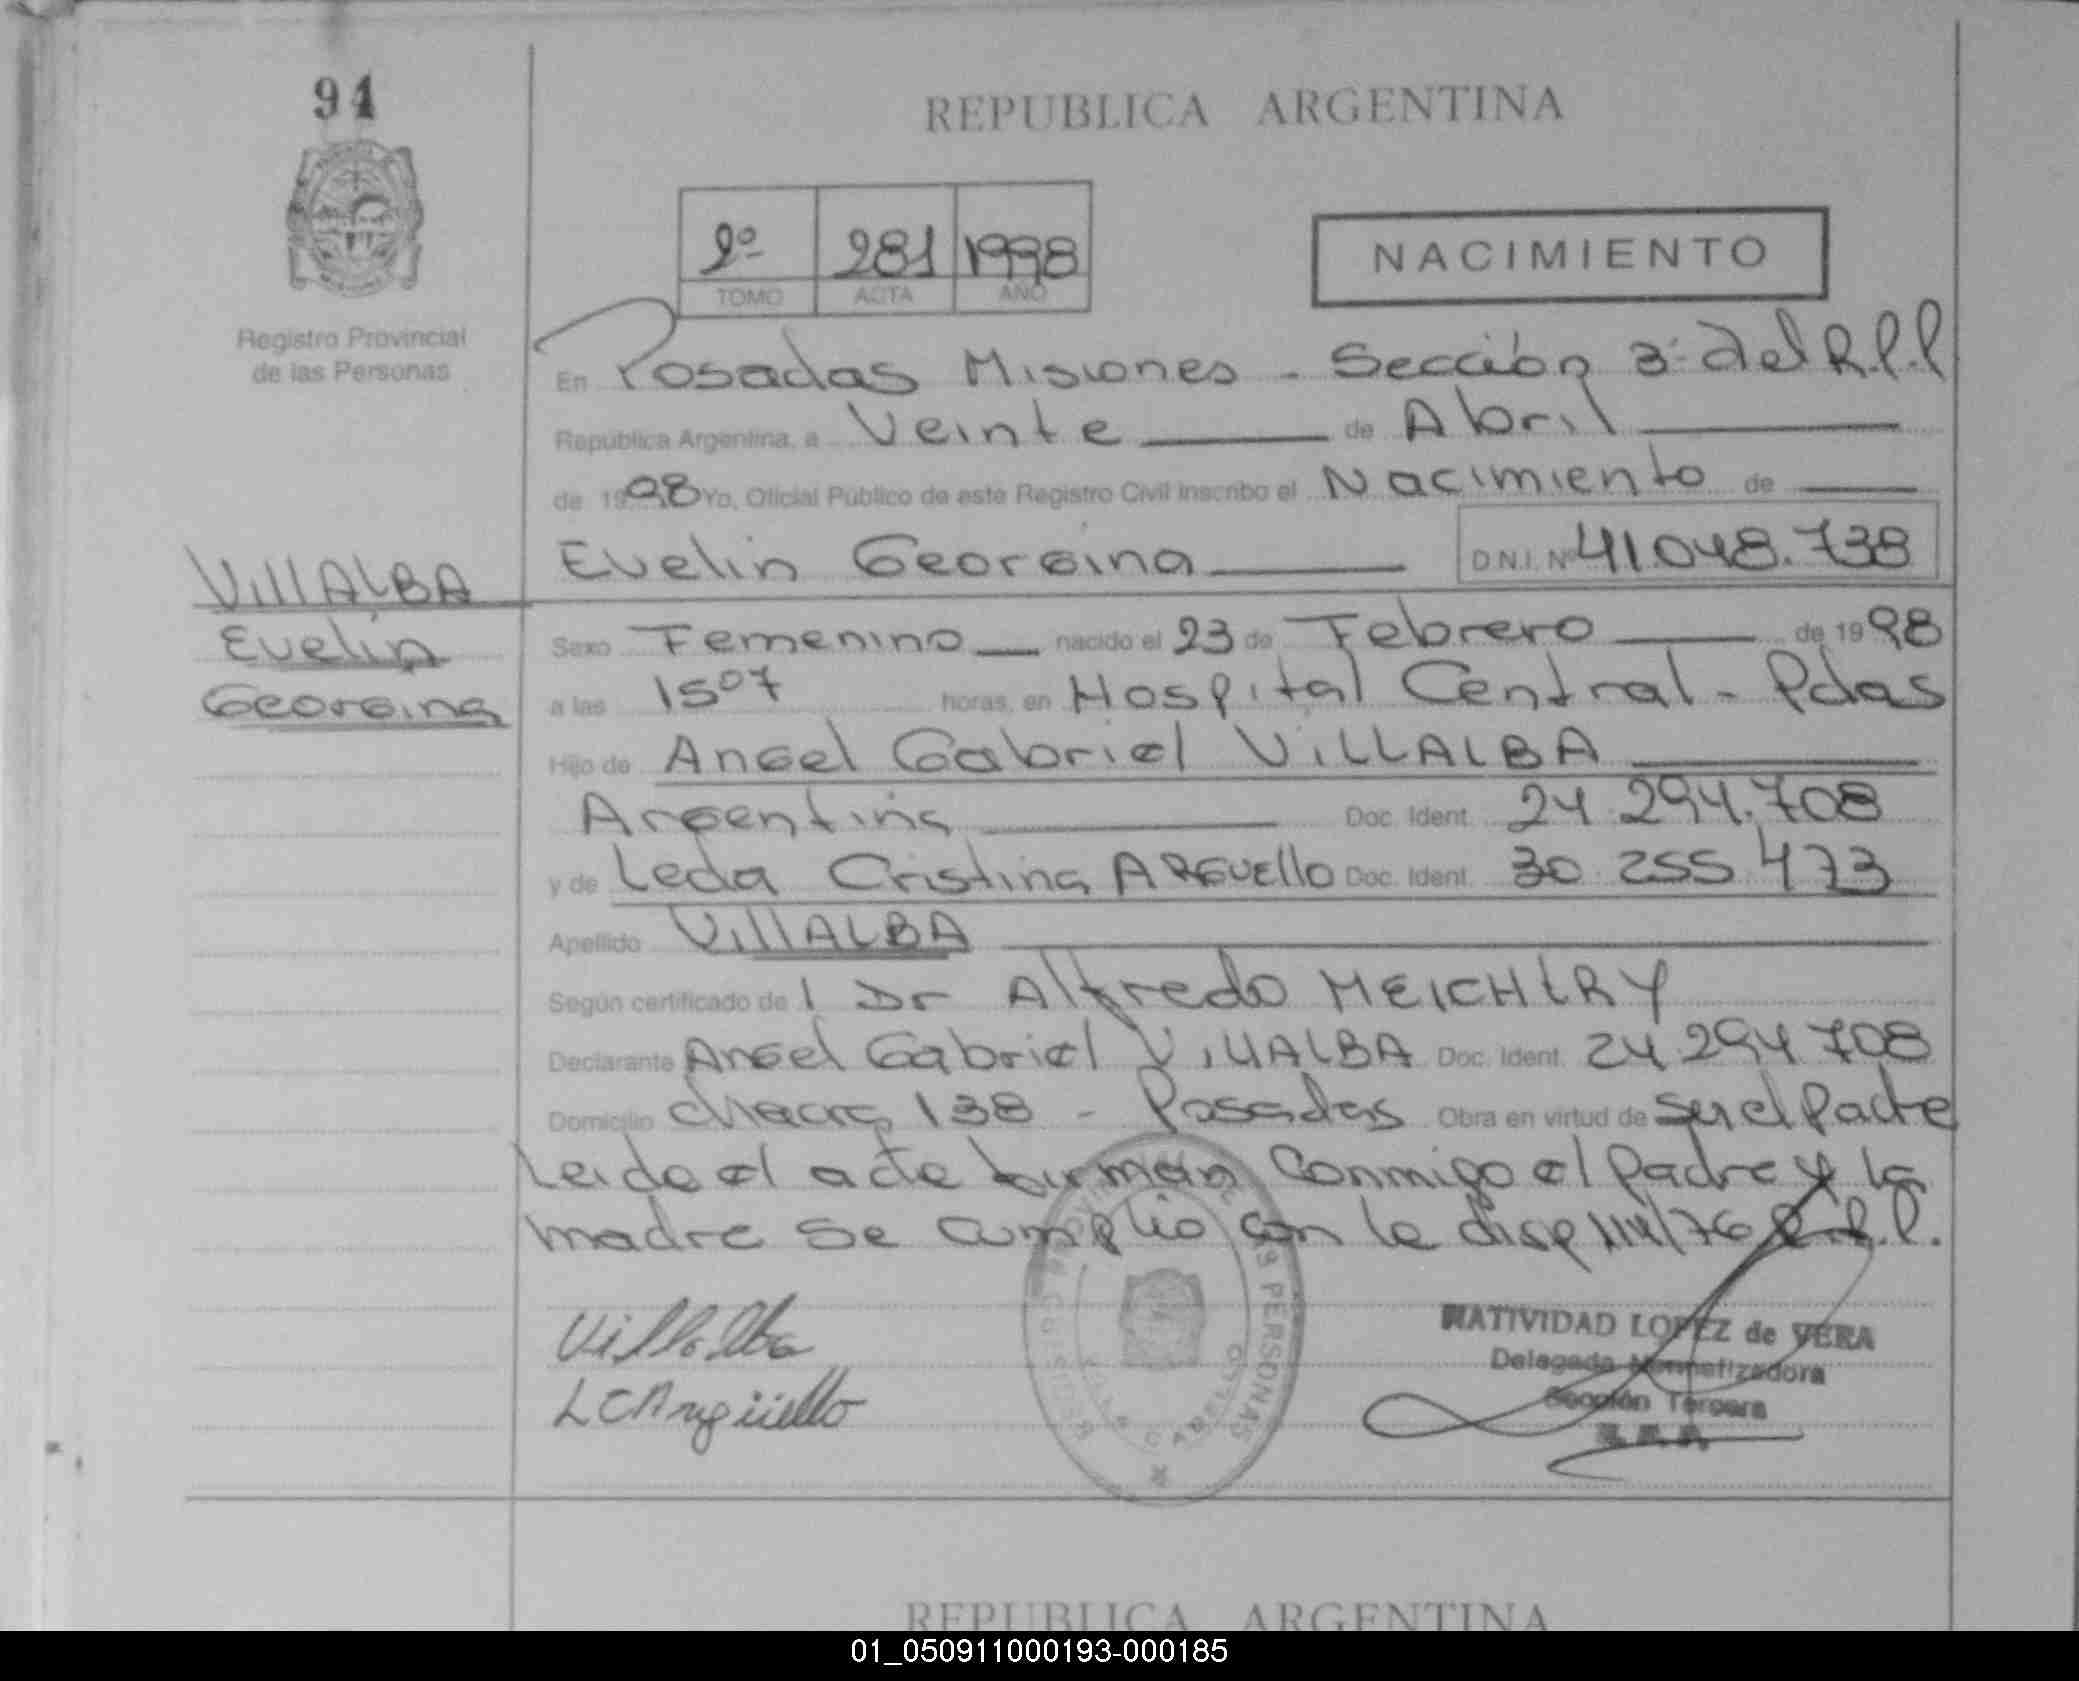 94
REPUBLICA ARGENTINA
2º 281 1998
TOMO ACTA AÑO
NACIMIENTO
Registro Provincial
de las Personas
En Posadas Misiones - Sección 3ª del R.P.P
República Argentina, a Veinte de Abril
de 1998 Yo, Oficial Público de este Registro Civil inscribo el Nacimiento de
Evelin Georgina D.N.I. Nº 41.048.738
VillALBA
Evelin
Georgina
Sexo Femenino nacido el 23 de Febrero de 1998
a las 15 07 horas, en Hospital Central - Pdas
Hijo de Angel Gabriel VILLALBA
Argentina Doc. Ident. 24.294.708
y de Leda Cristina ARGUEllO Doc. Ident. 30.255.473
Apellido VillALBA
Según certificado de l Dr Alfredo MEICHtRY
Declarante Angel Gabriel VillALBA Doc. Ident. 24.294.708
Domicilio chacra 138 - Posadas Obra en virtud de ser el Padre
Leida el acta firman conmigo el padre y la
madre se cumplio con la disp 114/76 R.P.P.
Villalba
LCArgüello
REGISTRO PROVINCIAL DE LAS PERSONAS
VILLA CABELLO
NATIVIDAD LOPEZ de VERA
Delegada Normatizadora
Sección Tercera
R.P.P.
REPUBLICA ARGENTINA
01_050911000193-000185